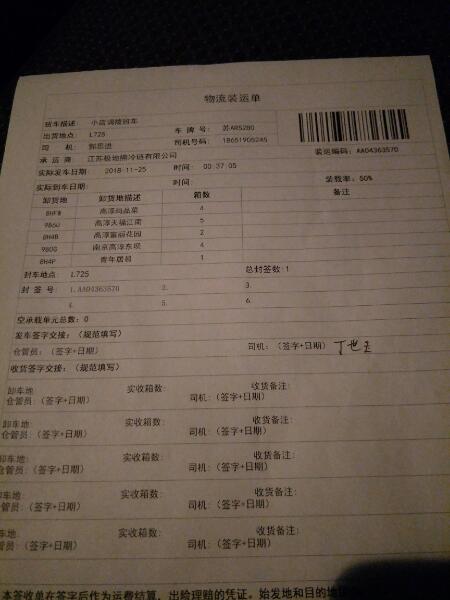 物流装运单
班车描述: 小店调陵班车
出货地点: L725 车 牌 号: 苏AR5280
司 机: 郭思进 司机号码: 18651905245
承 运 商: 江苏极地熊冷链有限公司 装运编码: AA04363570
实际发车日期: 2018-11-25 时间: 00:37:05
实际到车日期: 时间: 装载率: 50%
卸货地 卸货地描述 箱数 备注
8HFW 高淳尚品菜 4
986U 高淳天福江南 5
8H4B 高淳富丽花园 2
980G 南京高淳东坝 4
8H4P 青年居易 1
封车地点: L725 总封签数:1
封 签 号: 1.AA04363570 2. 3.
4. 5. 6.
空承载单元总数: 0
发车签字交接: (规范填写)
仓管员: (签字+日期) 司机: (签字+日期) 丁世
收货签字交接: (规范填写)
卸车地 实收箱数: 收货备注:
仓管员: (签字+日期) 司机: (签字+日期)
卸车地: 实收箱数: 收货备注:
仓管员: (签字+日期) 司机: (签字+日期)
卸车地: 实收箱数: 收货备注:
管员: (签字+日期) 司机: (签字+日期)
车地: 实收箱数: 收货备注:
管员: (签字+日期) 司机: (签字+日期)
车地: 实收箱数: 收货备注:
管员: (签字+日期) 司机: (签字+日期)
本签收单在签字后作为运费结算、出险理赔的凭证。始发地和目的地